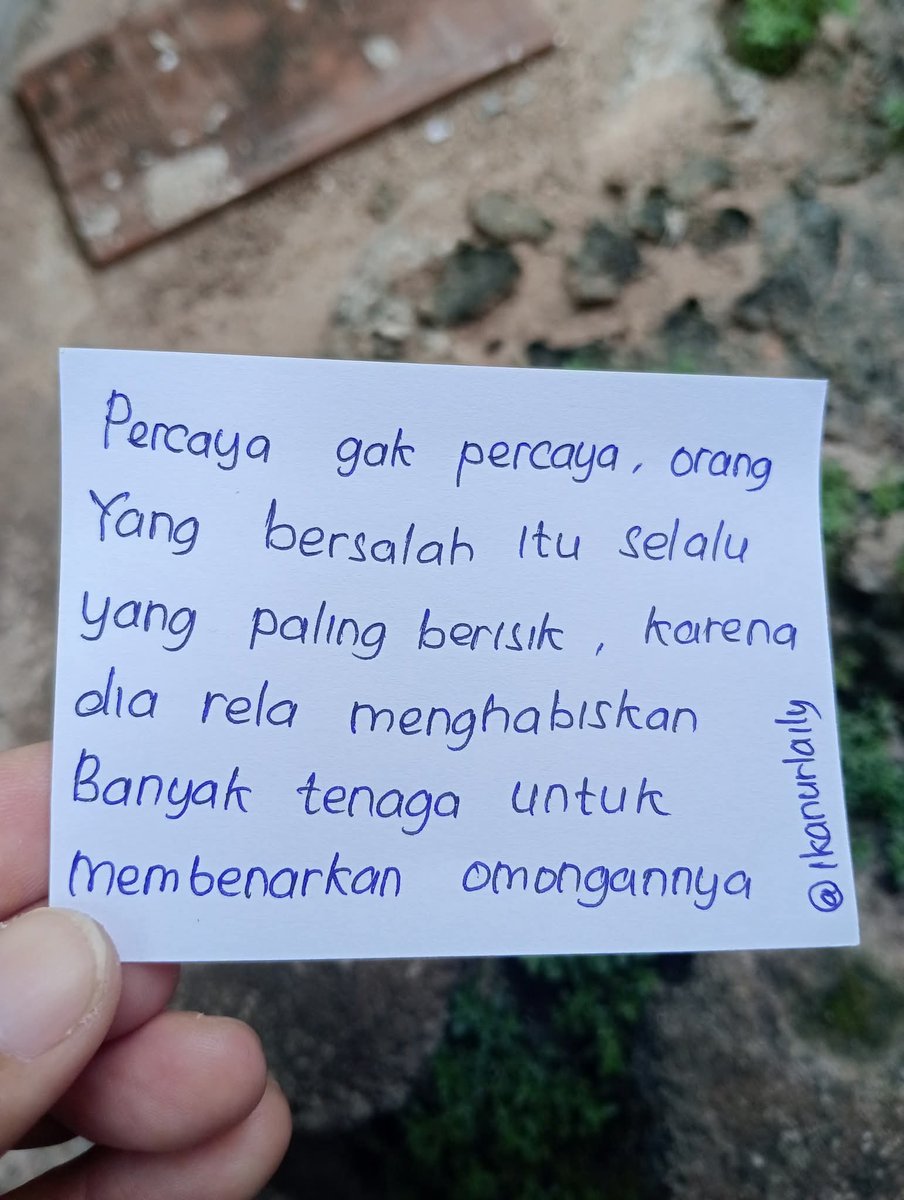 Percaya gak percaya, orang
Yang bersalah Itu selalu
yang paling berisik, karena
dia rela menghabiskan
Banyak tenaga untuk
membenarkan omongannya
@ikanurlaily